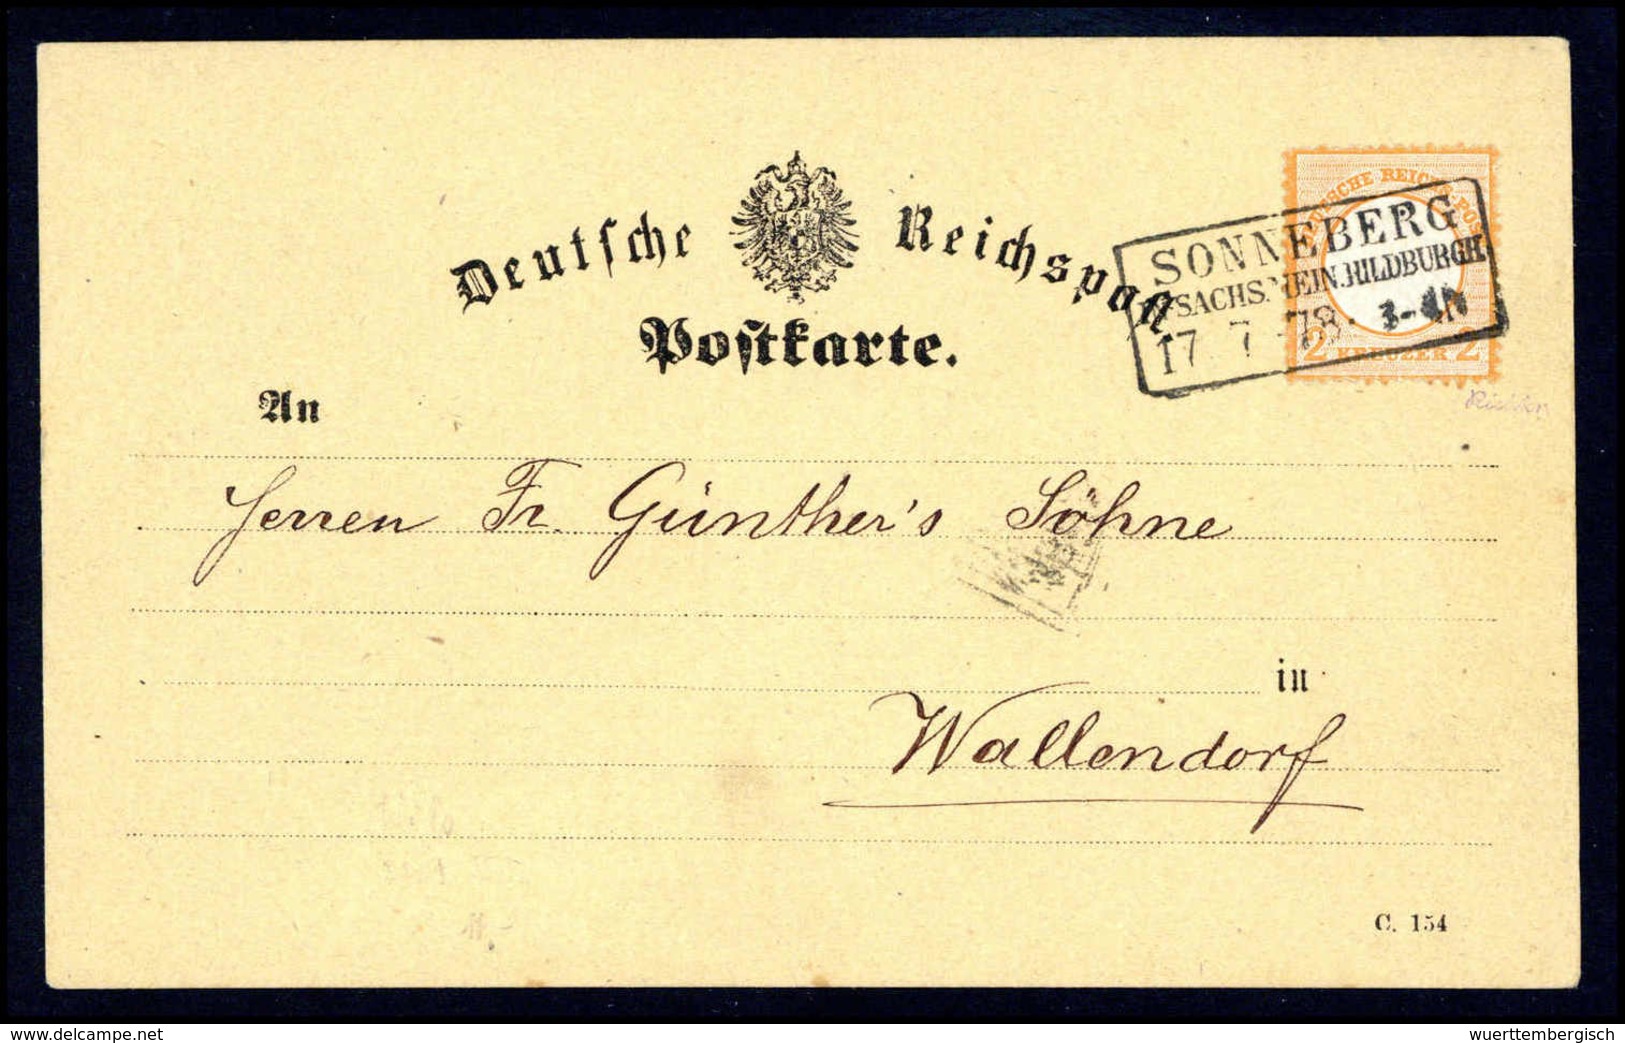 Deutsche Reichspost
Postkarte.
DEUTSCHE REICHS-POST
SONNEBERG
SACHS.MEIN.HILDBURGH.
17 7 78. 3-4N
2 KREUZER 2
An
Herren Fr. Günther's Söhne
in
Wallendorf
C. 154
© delcampe.net
wuerttembergisch